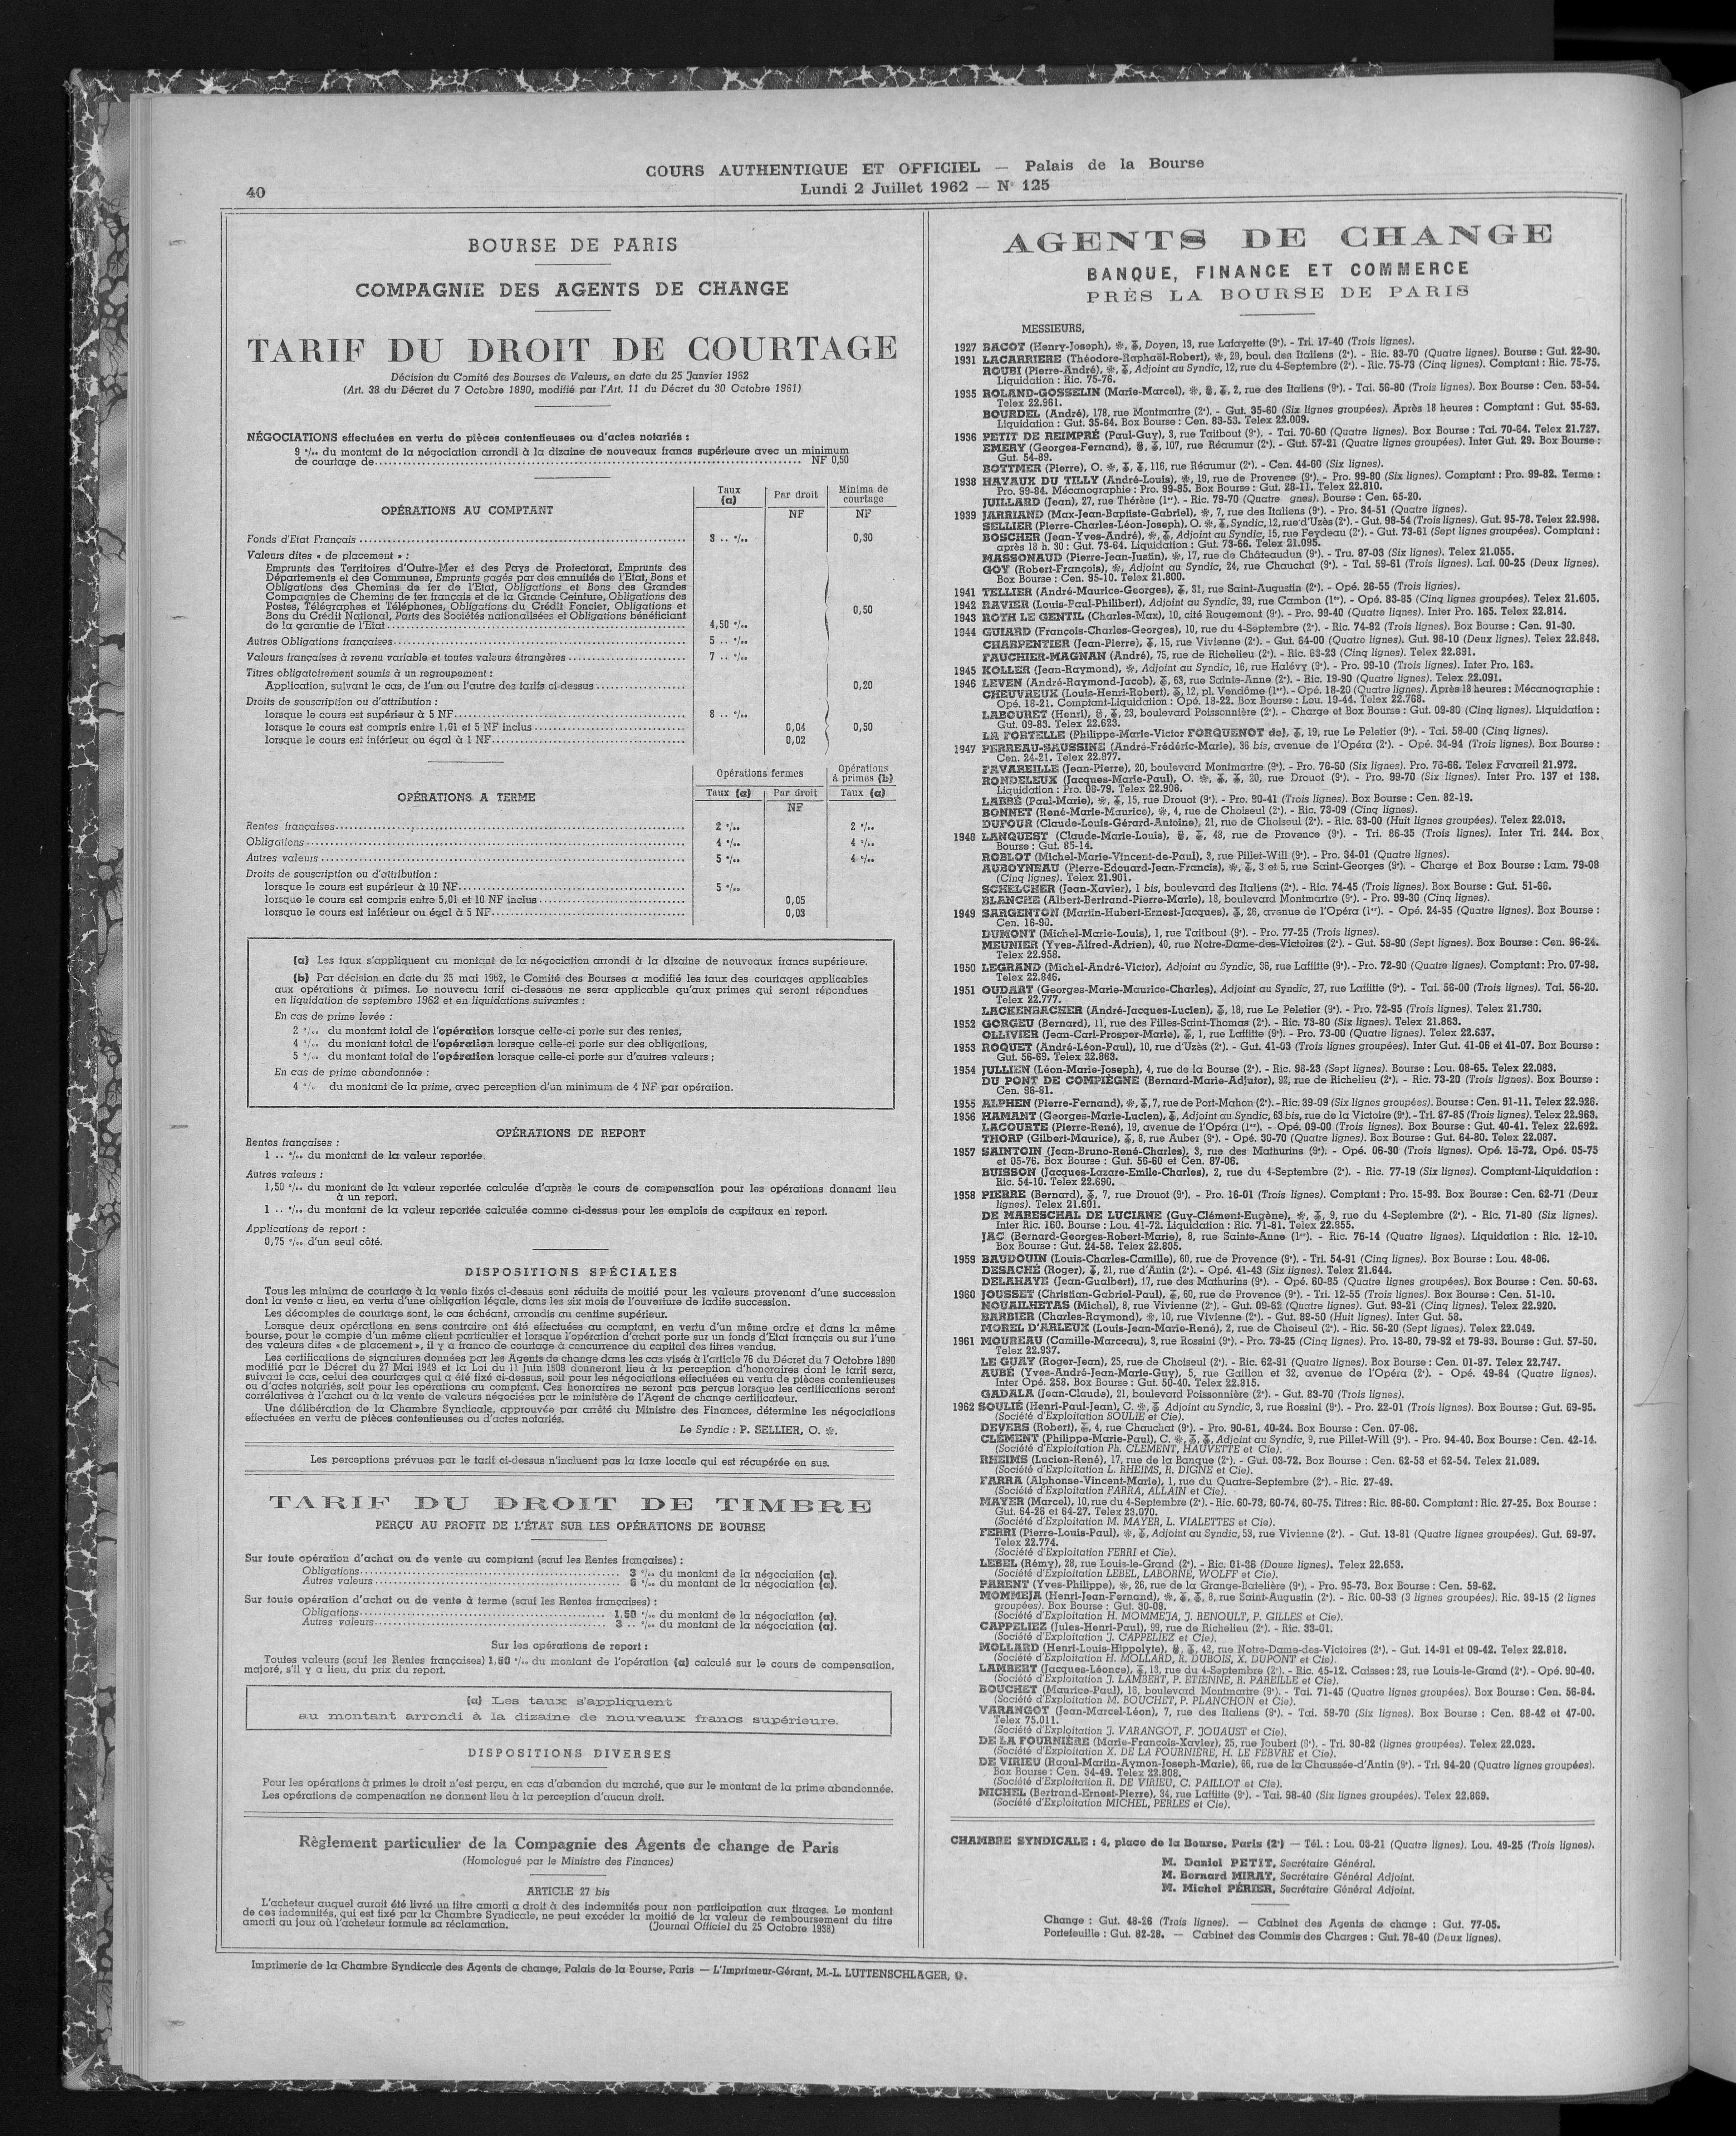 COURS AUTHENTIQUE ET OFFICIEL — Palais de la Bourse
40
Lundi 2 Juillet 1962 — N° 125
BOURSE DE PARIS
COMPAGNIE DES AGENTS DE CHANGE
TARIF DU DROIT DE COURTAGE
Décision du Comité des Bourses de Valeurs, en date du 25 Janvier 1962
(Art. 38 du Décret du 7 Octobre 1890, modifié par l'Art. 11 du Décret du 30 Octobre 1961)
NÉGOCIATIONS effectuées en vertu de pièces contentieuses ou d'actes notariés :
9 ‰ du montant de la négociation arrondi à la dizaine de nouveaux francs supérieure avec un minimum
de courtage de........ NF 0,50
OPÉRATIONS AU COMPTANT
Taux (a) Par droit Minima de courtage
NF NF
Fonds d'Etat Français ........ 3 .. ‰ 0,30
Valeurs dites « de placement » :
Emprunts des Territoires d'Outre-Mer et des Pays de Protectorat, Emprunts des
Départements et des Communes, Emprunts gagés par des annuités de l'Etat, Bons et
Obligations des Chemins de fer de l'Etat, Obligations et Bons des Grandes
Compagnies de Chemins de fer français et de la Grande Ceinture, Obligations des
Postes, Télégraphes et Téléphones, Obligations du Crédit Foncier, Obligations et
Bons du Crédit National, Parts des Sociétés nationalisées et Obligations bénéficiant
de la garantie de l'Etat ........ 4,50 ‰ 0,50
Autres Obligations françaises ........ 5 .. ‰
Valeurs françaises à revenu variable et toutes valeurs étrangères ........ 7 .. ‰
Titres obligatoirement soumis à un regroupement :
Application, suivant le cas, de l'un ou l'autre des tarifs ci-dessus ........ 0,20
Droits de souscription ou d'attribution :
lorsque le cours est supérieur à 5 NF ........ 8 .. ‰
lorsque le cours est compris entre 1,01 et 5 NF inclus ........ 0,04 0,50
lorsque le cours est inférieur ou égal à 1 NF ........ 0,02
OPÉRATIONS A TERME
Opérations fermes Opérations à primes (b)
Taux (a) Par droit Taux (a)
NF
Rentes françaises ........ 2 ‰ 2 ‰
Obligations ........ 4 ‰ 4 ‰
Autres valeurs ........ 5 ‰ 4 ‰
Droits de souscription ou d'attribution :
lorsque le cours est supérieur à 10 NF ........ 5 ‰
lorsque le cours est compris entre 5,01 et 10 NF inclus ........ 0,05
lorsque le cours est inférieur ou égal à 5 NF ........ 0,03
(a) Les taux s'appliquent au montant de la négociation arrondi à la dizaine de nouveaux francs supérieure.
(b) Par décision en date du 25 mai 1962, le Comité des Bourses a modifié les taux des courtages applicables
aux opérations à primes. Le nouveau tarif ci-dessous ne sera applicable qu'aux primes qui seront répondues
en liquidation de septembre 1962 et en liquidations suivantes :
En cas de prime levée :
2 ‰ du montant total de l'opération lorsque celle-ci porte sur des rentes,
4 ‰ du montant total de l'opération lorsque celle-ci porte sur des obligations,
5 ‰ du montant total de l'opération lorsque celle-ci porte sur d'autres valeurs ;
En cas de prime abandonnée :
4 % du montant de la prime, avec perception d'un minimum de 4 NF par opération.
OPÉRATIONS DE REPORT
Rentes françaises :
1 .. ‰ du montant de la valeur reportée.
Autres valeurs :
1,50 ‰ du montant de la valeur reportée calculée d'après le cours de compensation pour les opérations donnant lieu
à un report.
1 .. ‰ du montant de la valeur reportée calculée comme ci-dessus pour les emplois de capitaux en report.
Applications de report :
0,75 ‰ d'un seul côté.
DISPOSITIONS SPÉCIALES
Tous les minima de courtage à la vente fixés ci-dessus sont réduits de moitié pour les valeurs provenant d'une succession
dont la vente a lieu, en vertu d'une obligation légale, dans les six mois de l'ouverture de ladite succession.
Les décomptes de courtage sont, le cas échéant, arrondis au centime supérieur.
Lorsque deux opérations en sens contraire ont été effectuées au comptant, en vertu d'un même ordre et dans la même
bourse, pour le compte d'un même client particulier et lorsque l'opération d'achat porte sur un fonds d'Etat français ou sur l'une
des valeurs dites « de placement », il y a franco de courtage à concurrence du capital des titres vendus.
Les certifications de signatures données par les Agents de change dans les cas visés à l'article 76 du Décret du 7 Octobre 1890
modifié par le Décret du 27 Mai 1949 et la Loi du 11 Juin 1909 donneront lieu à la perception d'honoraires dont le tarif sera,
suivant le cas, celui des courtages qui a été fixé ci-dessus, soit pour les négociations effectuées en vertu de pièces contentieuses
ou d'actes notariés, soit pour les opérations au comptant. Ces honoraires ne seront pas perçus lorsque les certifications seront
corrélatives à l'achat ou à la vente de valeurs négociées par le ministère de l'Agent de change certificateur.
Une délibération de la Chambre Syndicale, approuvée par arrêté du Ministre des Finances, détermine les négociations
effectuées en vertu de pièces contentieuses ou d'actes notariés.
Le Syndic : P. SELLIER, O. ❊.
Les perceptions prévues par le tarif ci-dessus n'incluent pas la taxe locale qui est récupérée en sus.
TARIF DU DROIT DE TIMBRE
PERÇU AU PROFIT DE L'ÉTAT SUR LES OPÉRATIONS DE BOURSE
Sur toute opération d'achat ou de vente au comptant (sauf les Rentes françaises) :
Obligations ........ 3 ‰ du montant de la négociation (a).
Autres valeurs ........ 6 ‰ du montant de la négociation (a).
Sur toute opération d'achat ou de vente à terme (sauf les Rentes françaises) :
Obligations ........ 1,50 ‰ du montant de la négociation (a).
Autres valeurs ........ 3 .. ‰ du montant de la négociation (a).
Sur les opérations de report :
Toutes valeurs (sauf les Rentes françaises) 1,50 ‰ du montant de l'opération (a) calculé sur le cours de compensation,
majoré, s'il y a lieu, du prix du report.
(a) Les taux s'appliquent
au montant arrondi à la dizaine de nouveaux francs supérieure.
DISPOSITIONS DIVERSES
Pour les opérations à primes le droit n'est perçu, en cas d'abandon du marché, que sur le montant de la prime abandonnée.
Les opérations de compensation ne donnent lieu à la perception d'aucun droit.
Règlement particulier de la Compagnie des Agents de change de Paris
(Homologué par le Ministre des Finances)
ARTICLE 27 bis
L'acheteur auquel aurait été livré un titre amorti a droit à des indemnités pour non participation aux tirages. Le montant
de ces indemnités, qui est fixé par la Chambre Syndicale, ne peut excéder la moitié de la valeur de remboursement du titre
amorti au jour où l'acheteur formule sa réclamation. (Journal Officiel du 25 Octobre 1938)
AGENTS DE CHANGE
BANQUE, FINANCE ET COMMERCE
PRÈS LA BOURSE DE PARIS
MESSIEURS,
1927 BACOT (Henry-Joseph), Doyen, 13, rue Lafayette (9e). - Tri. 17-40 (Trois lignes).
1931 LACARRIERE (Théodore-Raphaël-Robert), 29, boul. des Italiens (2e). - Ric. 83-70 (Quatre lignes). Bourse : Gut. 22-90.
ROUBI (Pierre-André), Adjoint au Syndic, 12, rue du 4-Septembre (2e). - Ric. 75-73 (Cinq lignes). Comptant : Ric. 75-75.
Liquidation : Ric. 75-76.
1935 ROLAND-GOSSELIN (Marie-Marcel), 2, rue des Italiens (9e). - Tai. 56-80 (Trois lignes). Box Bourse : Cen. 53-54.
Telex 22.961.
BOURDEL (André), 178, rue Montmartre (2e). - Gut. 35-60 (Six lignes groupées). Après 18 heures : Comptant : Gut. 35-63.
Liquidation : Gut. 35-64. Box Bourse : Cen. 83-53. Telex 22.009.
1936 PETIT DE REIMPRÉ (Paul-Guy), 3, rue Taitbout (9e). - Tai. 70-60 (Quatre lignes). Box Bourse : Tai. 70-64. Telex 21.727.
EMERY (Georges-Fernand), 107, rue Réaumur (2e). - Gut. 57-21 (Quatre lignes groupées). Inter Gut. 29. Box Bourse :
Gut. 54-89.
BOTTMER (Pierre), O. 116, rue Réaumur (2e). - Cen. 44-60 (Six lignes).
1938 HAYAUX DU TILLY (André-Louis), 19, rue de Provence (9e). - Pro. 99-80 (Six lignes). Comptant : Pro. 99-82. Terme :
Pro. 99-84. Mécanographie : Pro. 99-85. Box Bourse : Gut. 28-11. Telex 22.810.
JUILLARD (Jean), 27, rue Thérèse (1er). - Ric. 79-70 (Quatre gnes). Bourse : Cen. 65-20.
1939 JARRIAND (Max-Jean-Baptiste-Gabriel), 7, rue des Italiens (9e). - Pro. 34-51 (Quatre lignes).
SELLIER (Pierre-Charles-Léon-Joseph), O. Syndic, 12, rue d'Uzès (2e). - Gut. 98-54 (Trois lignes). Gut. 95-78. Telex 22.998.
BOSCHER (Jean-Yves-André), Adjoint au Syndic, 15, rue Feydeau (2e). - Gut. 73-61 (Sept lignes groupées). Comptant :
après 18 h. 30 : Gut. 73-64. Liquidation : Gut. 73-66. Telex 21.095.
MASSONAUD (Pierre-Jean-Justin), 17, rue de Châteaudun (9e). - Tru. 87-03 (Six lignes). Telex 21.055.
GOY (Robert-François), Adjoint au Syndic, 24, rue Chauchat (9e). - Tai. 59-61 (Trois lignes). Laf. 00-25 (Deux lignes).
Box Bourse : Cen. 95-10. Telex 21.800.
1941 TELLIER (André-Maurice-Georges), 31, rue Saint-Augustin (2e). - Opé. 26-55 (Trois lignes).
1942 RAVIER (Louis-Paul-Philibert), Adjoint au Syndic, 39, rue Cambon (1er). - Opé. 83-85 (Cinq lignes groupées). Telex 21.605.
1943 ROTH LE GENTIL (Charles-Max), 10, cité Rougemont (9e). - Pro. 99-40 (Quatre lignes). Inter Pro. 165. Telex 22.814.
1944 GUIARD (François-Charles-Georges), 10, rue du 4-Septembre (2e). - Ric. 74-82 (Trois lignes). Box Bourse : Cen. 91-30.
CHARPENTIER (Jean-Pierre), 15, rue Vivienne (2e). - Gut. 64-00 (Quatre lignes). Gut. 98-10 (Deux lignes). Telex 22.848.
FAUCHIER-MAGNAN (André), 75, rue de Richelieu (2e). - Ric. 63-23 (Cinq lignes). Telex 22.891.
1945 KOLLER (Jean-Raymond), Adjoint au Syndic, 16, rue Halévy (9e). - Pro. 99-10 (Trois lignes). Inter Pro. 163.
1946 LEVEN (André-Raymond-Jacob), 63, rue Sainte-Anne (2e). - Ric. 19-90 (Quatre lignes). Telex 22.091.
CHEUVREUX (Louis-Henri-Robert), 12, pl. Vendôme (1er). - Opé. 18-20 (Quatre lignes). Après 18 heures : Mécanographie :
Opé. 18-21. Comptant-Liquidation : Opé. 18-22. Box Bourse : Lou. 19-44. Telex 22.768.
LABOURET (Henri), 23, boulevard Poissonnière (2e). - Charge et Box Bourse : Gut. 09-80 (Cinq lignes). Liquidation :
Gut. 09-83. Telex 22.623.
LA FORTELLE (Philippe-Marie-Victor FORQUENOT de), 19, rue Le Peletier (9e). - Tai. 58-00 (Cinq lignes).
1947 PERREAU-SAUSSINE (André-Frédéric-Marie), 36 bis, avenue de l'Opéra (2e). - Opé. 34-94 (Trois lignes). Box Bourse :
Cen. 24-21. Telex 22.977.
FAVAREILLE (Jean-Pierre), 20, boulevard Montmartre (9e). - Pro. 76-60 (Six lignes). Pro. 76-66. Telex Favareil 21.972.
RONDELEUX (Jacques-Marie-Paul), O. 20, rue Drouot (9e). - Pro. 99-70 (Six lignes). Inter Pro. 137 et 138.
Liquidation : Pro. 08-79. Telex 22.906.
LABBÉ (Paul-Marie), 15, rue Drouot (9e). - Pro. 90-41 (Trois lignes). Box Bourse : Cen. 82-19.
BONNET (René-Marie-Maurice), 4, rue de Choiseul (2e). - Ric. 73-09 (Cinq lignes).
DUFOUR (Claude-Louis-Gérard-Antoine), 21, rue de Choiseul (2e). - Ric. 63-00 (Huit lignes groupées). Telex 22.013.
1948 LANQUEST (Claude-Marie-Louis), 48, rue de Provence (9e). - Tri. 86-35 (Trois lignes). Inter Tri. 244. Box
Bourse : Gut. 85-14.
ROBLOT (Michel-Marie-Vincent-de-Paul), 3, rue Pillet-Will (9e). - Pro. 34-01 (Quatre lignes).
AUBOYNEAU (Pierre-Edouard-Jean-Francis), 3 et 5, rue Saint-Georges (9e). - Charge et Box Bourse : Lam. 79-08
(Cinq lignes). Telex 21.901.
SCHELCHER (Jean-Xavier), 1 bis, boulevard des Italiens (2e). - Ric. 74-45 (Trois lignes). Box Bourse : Gut. 51-66.
BLANCHE (Albert-Bertrand-Pierre-Marie), 18, boulevard Montmartre (9e). - Pro. 99-30 (Cinq lignes).
1949 SARGENTON (Martin-Hubert-Ernest-Jacques), 26, avenue de l'Opéra (1er). - Opé. 24-35 (Quatre lignes). Box Bourse :
Cen. 16-90.
DUMONT (Michel-Marie-Louis), 1, rue Taitbout (9e). - Pro. 77-25 (Trois lignes).
MEUNIER (Yves-Alfred-Adrien), 40, rue Notre-Dame-des-Victoires (2e). - Gut. 58-90 (Sept lignes). Box Bourse : Cen. 96-24.
Telex 22.958.
1950 LEGRAND (Michel-André-Victor), Adjoint au Syndic, 36, rue Laffitte (9e). - Pro. 72-90 (Quatre lignes). Comptant : Pro. 07-98.
Telex 22.846.
1951 OUDART (Georges-Marie-Maurice-Charles), Adjoint au Syndic, 27, rue Laffitte (9e). - Tai. 56-00 (Trois lignes). Tai. 56-20.
Telex 22.777.
LACKENBACHER (André-Jacques-Lucien), 18, rue Le Peletier (9e). - Pro. 72-95 (Trois lignes). Telex 21.730.
1952 GORGEU (Bernard), 11, rue des Filles-Saint-Thomas (2e). - Ric. 73-80 (Six lignes). Telex 21.863.
OLLIVIER (Jean-Carl-Prosper-Marie), 1, rue Laffitte (9e). - Pro. 73-00 (Quatre lignes). Telex 22.637.
1953 ROQUET (André-Léon-Paul), 10, rue d'Uzès (2e). - Gut. 41-03 (Trois lignes groupées). Inter Gut. 41-06 et 41-07. Box Bourse :
Gut. 56-69. Telex 22.863.
1954 JULLIEN (Léon-Marie-Joseph), 4, rue de la Bourse (2e). - Ric. 98-23 (Sept lignes). Bourse : Lou. 08-65. Telex 22.083.
DU PONT DE COMPIÈGNE (Bernard-Marie-Adjutor), 92, rue de Richelieu (2e). - Ric. 73-20 (Trois lignes). Box Bourse :
Cen. 96-81.
1955 ALPHEN (Pierre-Fernand), 7, rue de Port-Mahon (2e). - Ric. 39-09 (Six lignes groupées). Bourse : Cen. 91-11. Telex 22.926.
1956 HAMANT (Georges-Marie-Lucien), Adjoint au Syndic, 63 bis, rue de la Victoire (9e). - Tri. 87-85 (Trois lignes). Telex 22.963.
LACOURTE (Pierre-René), 19, avenue de l'Opéra (1er). - Opé. 09-00 (Trois lignes). Box Bourse : Gut. 40-41. Telex 22.692.
THORP (Gilbert-Maurice), 8, rue Auber (9e). - Opé. 30-70 (Quatre lignes). Box Bourse : Gut. 64-80. Telex 22.087.
1957 SAINTOIN (Jean-Bruno-René-Charles), 3, rue des Mathurins (9e). - Opé. 06-30 (Trois lignes). Opé. 15-72, Opé. 05-75
et 05-76. Box Bourse : Gut. 56-60 et Cen. 87-06.
BUISSON (Jacques-Lazare-Emile-Charles), 2, rue du 4-Septembre (2e). - Ric. 77-19 (Six lignes). Comptant-Liquidation :
Ric. 54-10. Telex 22.690.
1958 PIERRE (Bernard), 7, rue Drouot (9e). - Pro. 16-01 (Trois lignes). Comptant : Pro. 15-93. Box Bourse : Cen. 62-71 (Deux
lignes). Telex 21.601.
DE MARESCHAL DE LUCIANE (Guy-Clément-Eugène), 9, rue du 4-Septembre (2e). - Ric. 71-80 (Six lignes).
Inter Ric. 160. Bourse : Lou. 41-72. Liquidation : Ric. 71-81. Telex 22.955.
JAC (Bernard-Georges-Robert-Marie), 8, rue Sainte-Anne (1er). - Ric. 76-14 (Quatre lignes). Liquidation : Ric. 12-10.
Box Bourse : Gut. 24-58. Telex 22.805.
1959 BAUDOUIN (Louis-Charles-Camille), 60, rue de Provence (9e). - Tri. 54-91 (Cinq lignes). Box Bourse : Lou. 48-06.
DESACHÉ (Roger), 21, rue d'Antin (2e). - Opé. 41-43 (Six lignes). Telex 21.644.
DELAHAYE (Jean-Gualbert), 17, rue des Mathurins (9e). - Opé. 60-85 (Quatre lignes groupées). Box Bourse : Cen. 50-63.
1960 JOUSSET (Christian-Gabriel-Paul), 60, rue de Provence (9e). - Tri. 12-55 (Trois lignes). Box Bourse : Cen. 51-10.
NOUAILHETAS (Michel), 8, rue Vivienne (2e). - Gut. 09-62 (Quatre lignes). Gut. 93-21 (Cinq lignes). Telex 22.920.
BARBIER (Charles-Raymond), 10, rue Vivienne (2e). - Gut. 82-50 (Huit lignes). Inter Gut. 58.
MOREL D'ARLEUX (Louis-Jean-Marie-René), 2, rue de Choiseul (2e). - Ric. 56-20 (Sept lignes). Telex 22.049.
1961 MOUREAU (Camille-Marceau), 3, rue Rossini (9e). - Pro. 73-25 (Cinq lignes). Pro. 13-80, 79-92 et 79-93. Bourse : Gut. 57-50.
Telex 22.937.
LE GUAY (Roger-Jean), 25, rue de Choiseul (2e). - Ric. 62-91 (Quatre lignes). Box Bourse : Cen. 01-87. Telex 22.747.
AUBÉ (Yves-André-Jean-Marie-Guy), 5, rue Gaillon et 32, avenue de l'Opéra (2e). - Opé. 49-84 (Quatre lignes).
Inter Opé. 258. Box Bourse : Gut. 50-40. Telex 22.815.
GADALA (Jean-Claude), 21, boulevard Poissonnière (2e). - Gut. 83-70 (Trois lignes).
1962 SOULIÉ (Henri-Paul-Jean), C. Adjoint au Syndic, 3, rue Rossini (9e). - Pro. 22-01 (Trois lignes). Box Bourse : Gut. 69-95.
(Société d'Exploitation SOULIE et Cie).
DEVERS (Robert), 4, rue Chauchat (9e). - Pro. 90-61, 40-24. Box Bourse : Cen. 07-06.
CLÉMENT (Philippe-Marie-Paul), C. Adjoint au Syndic, 9, rue Pillet-Will (9e). - Pro. 94-40. Box Bourse : Cen. 42-14.
(Société d'Exploitation Ph. CLEMENT, HAUVETTE et Cie).
RHEIMS (Lucien-René), 17, rue de la Banque (2e). - Gut. 03-72. Box Bourse : Cen. 62-53 et 62-54. Telex 21.089.
(Société d'Exploitation L. RHEIMS, R. DIGNE et Cie).
FARRA (Alphonse-Vincent-Marie), 1, rue du Quatre-Septembre (2e). - Ric. 27-49.
(Société d'Exploitation FARRA, ALLAIN et Cie).
MAYER (Marcel), 10, rue du 4-Septembre (2e). - Ric. 60-73, 60-74, 60-75. Titres : Ric. 86-60. Comptant : Ric. 27-25. Box Bourse :
Gut. 64-26 et 64-27. Telex 23.070.
(Société d'Exploitation M. MAYER, L. VIALETTES et Cie).
FERRI (Pierre-Louis-Paul), Adjoint au Syndic, 53, rue Vivienne (2e). - Gut. 13-81 (Quatre lignes groupées). Gut. 69-97.
Telex 22.774.
(Société d'Exploitation FERRI et Cie).
LEBEL (Rémy), 28, rue Louis-le-Grand (2e). - Ric. 01-36 (Douze lignes). Telex 22.653.
(Société d'Exploitation LEBEL, LABORNE, WOLFF et Cie).
PARENT (Yves-Philippe), 26, rue de la Grange-Batelière (9e). - Pro. 95-73. Box Bourse : Cen. 59-62.
MOMMEJA (Henri-Jean-Fernand), 8, rue Saint-Augustin (2e). - Ric. 00-33 (3 lignes groupées). Ric. 39-15 (2 lignes
groupées). Box Bourse : Gut. 30-08.
(Société d'Exploitation H. MOMMEJA, J. RENOULT, P. GILLES et Cie).
CAPPELIEZ (Jules-Henri-Paul), 99, rue de Richelieu (2e). - Ric. 33-01.
(Société d'Exploitation J. CAPPELIEZ et Cie).
MOLLARD (Henri-Louis-Hippolyte), 42, rue Notre-Dame-des-Victoires (2e). - Gut. 14-91 et 09-42. Telex 22.818.
(Société d'Exploitation H. MOLLARD, R. DUBOIS, X. DUPONT et Cie).
LAMBERT (Jacques-Léonce), 13, rue du 4-Septembre (2e). - Ric. 45-12. Caisses : 23, rue Louis-le-Grand (2e). - Opé. 90-40.
(Société d'Exploitation J. LAMBERT, P. ETIENNE, R. PAREILLE et Cie).
BOUCHET (Maurice-Paul), 16, boulevard Montmartre (9e). - Tai. 71-45 (Quatre lignes groupées). Box Bourse : Cen. 56-84.
(Société d'Exploitation M. BOUCHET, P. PLANCHON et Cie).
VARANGOT (Jean-Marcel-Léon), 7, rue des Italiens (9e). - Tai. 59-70 (Six lignes). Box Bourse : Cen. 88-42 et 47-00.
Telex 75.011.
(Société d'Exploitation J. VARANGOT, F. JOUAUST et Cie).
DE LA FOURNIÈRE (Marie-François-Xavier), 25, rue Joubert (9e). - Tri. 30-82 (lignes groupées). Telex 22.023.
(Société d'Exploitation X. DE LA FOURNIERE, H. LE FEBVRE et Cie).
DE VIRIEU (Raoul-Martin-Aymon-Joseph-Marie), 66, rue de la Chaussée-d'Antin (9e). - Tri. 94-20 (Quatre lignes groupées).
Box Bourse : Cen. 34-49. Telex 22.808.
(Société d'Exploitation R. DE VIRIEU, C. PAILLOT et Cie).
MICHEL (Bertrand-Ernest-Pierre), 34, rue Laffitte (9e). - Tai. 98-40 (Six lignes groupées). Telex 22.869.
(Société d'Exploitation MICHEL, PERLES et Cie).
CHAMBRE SYNDICALE : 4, place de la Bourse, Paris (2e) — Tél. : Lou. 03-21 (Quatre lignes). Lou. 49-25 (Trois lignes).
M. Daniel PETIT, Secrétaire Général.
M. Bernard MIRAT, Secrétaire Général Adjoint.
M. Michel PÉRIER, Secrétaire Général Adjoint.
Change : Gut. 48-26 (Trois lignes). — Cabinet des Agents de change : Gut. 77-05.
Portefeuille : Gut. 82-28. — Cabinet des Commis des Charges : Gut. 78-40 (Deux lignes).
Imprimerie de la Chambre Syndicale des Agents de change, Palais de la Bourse, Paris — L'Imprimeur-Gérant, M.-L. LUTTENSCHLAGER